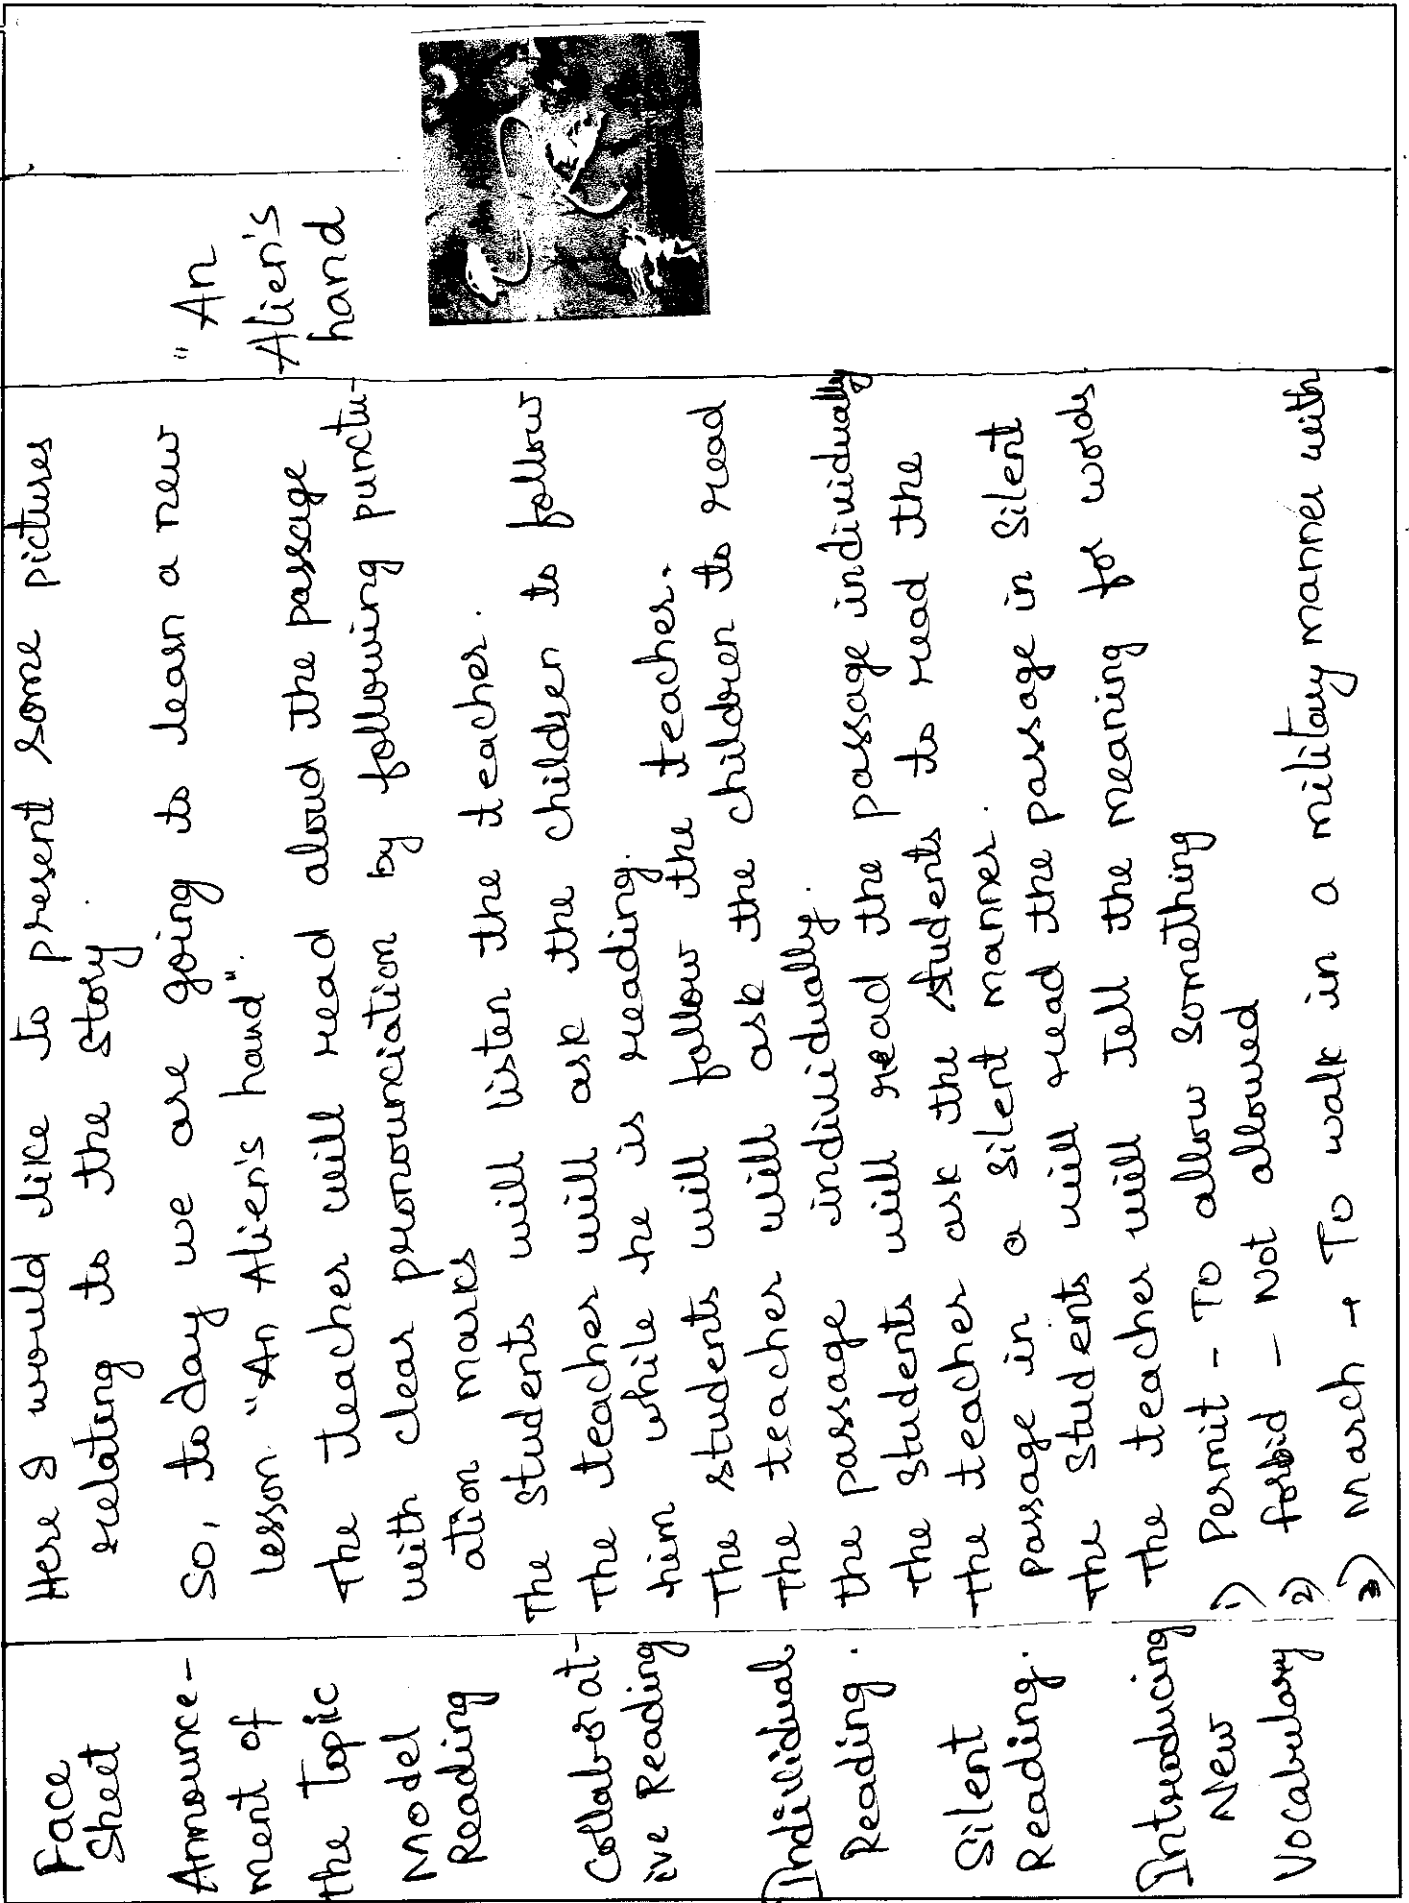 Face
Sheet
Here I would like to present some pictures
relating to the story.
Announce-
ment of
the topic
So, today we are going to learn a new
lesson "An Alien's hand".
"An
Alien's
hand
Model
Reading
The teacher will read aloud the passage
with clear pronounciation by following punctu-
ation marks
The students will listen the teacher.
Collaborat-
ive Reading
The teacher will ask the children to follow
him while he is reading.
The students will follow the teacher.
Individual
Reading.
The teacher will ask the children to read
the passage individually.
The students will read the passage individually
Silent
Reading.
The teacher ask the students to read the
passage in a silent manner.
The students will read the passage in silent
Introducing
New
Vocabulary
The teacher will tell the meaning for words
1) Permit - To allow something
2) forbid - Not allowed
3) March → To walk in a military manner with